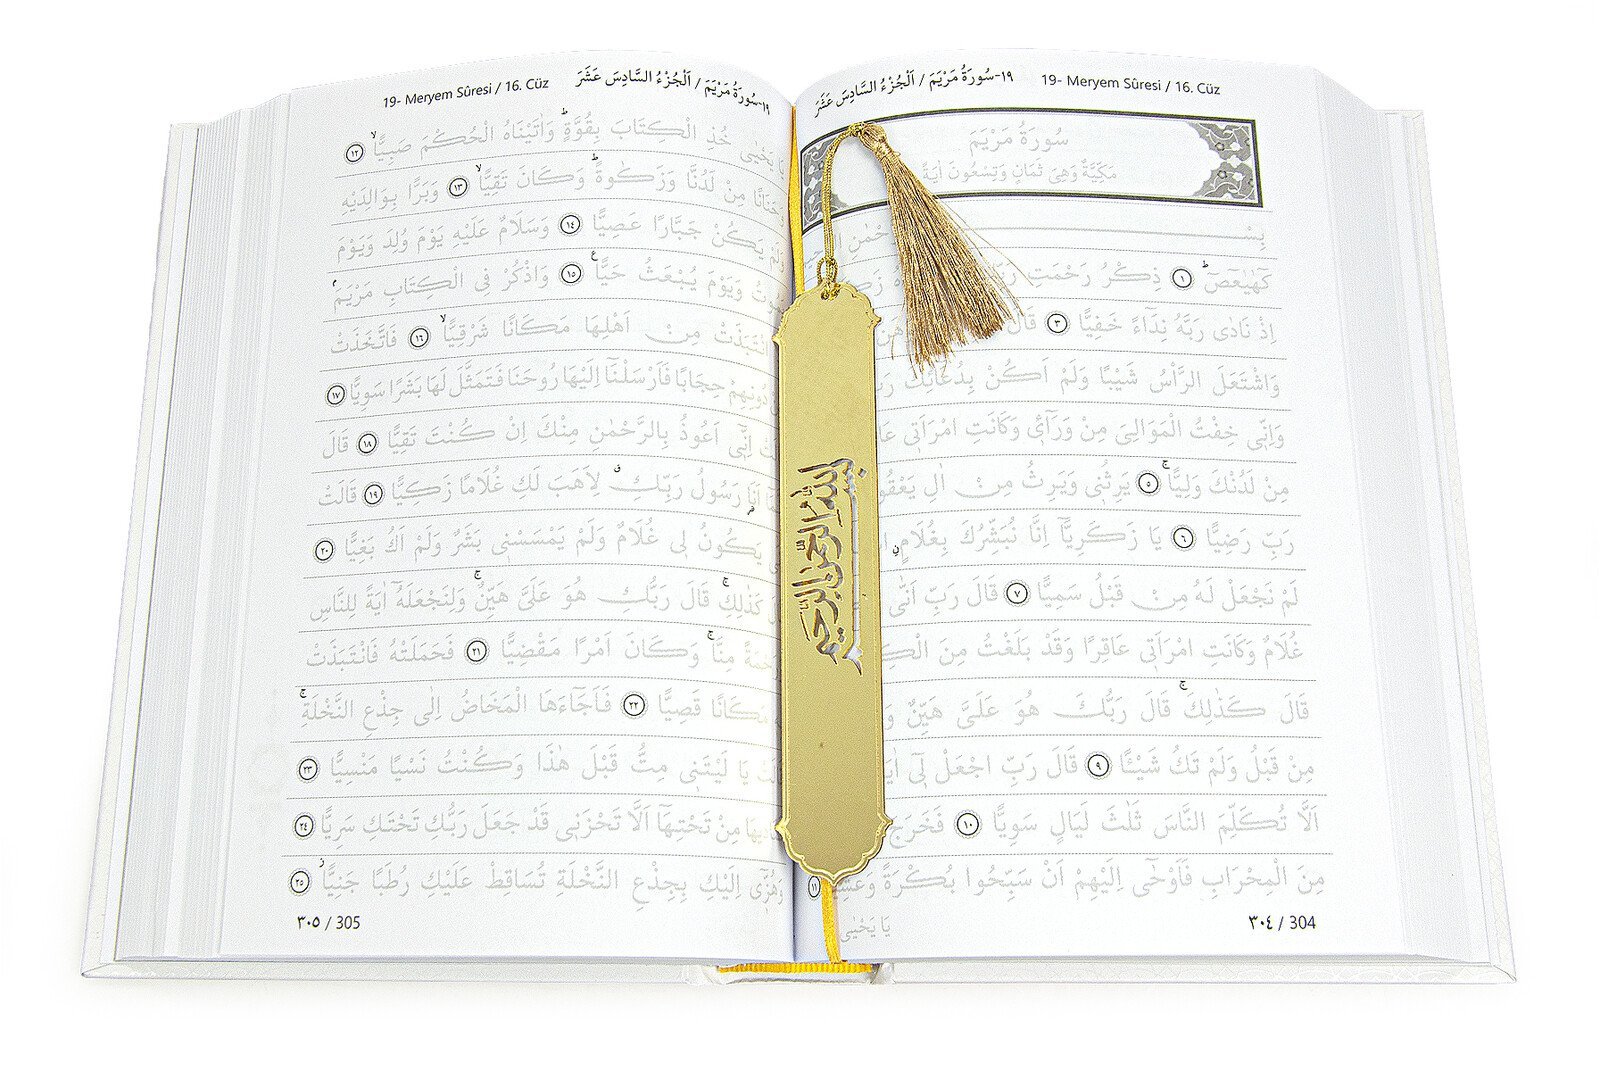 ١٩-سُورَةُ مَرْيَمَ / اَلْجُزْءُ السَّادِسَ عَشَرَ
19- Meryem Sûresi / 16. Cüz
سُورَةُ مَرْيَمَ
مَكِّيَّةٌ وَهِىَ ثَمَانٍ وَتِسْعُونَ اٰيَةً
كٓهٰيٰعٓصٓ ١ ذِكْرُ رَحْمَتِ
اِذْ نَادٰى رَبَّهُ نِدَٓاءً خَفِيًّا ٣ قَالَ
وَاشْتَعَلَ الرَّأْسُ شَيْبًا وَلَمْ اَكُنْ بِدُعَٓائِكَ
وَاِنّٖى خِفْتُ الْمَوَالِىَ مِنْ وَرَٓائٖى وَكَانَتِ امْرَاَتٖى
مِنْ لَدُنْكَ وَلِيًّا ٥ يَرِثُنٖى وَيَرِثُ مِنْ اٰلِ
رَبِّ رَضِيًّا ٦ يَا زَكَرِيَّٓا اِنَّا نُبَشِّرُكَ بِغُلَامٍ
لَمْ نَجْعَلْ لَهُ مِنْ قَبْلُ سَمِيًّا ٧ قَالَ رَبِّ اَنّٰى
غُلَامٌ وَكَانَتِ امْرَاَتٖى عَاقِرًا وَقَدْ بَلَغْتُ مِنَ
قَالَ كَذٰلِكَ قَالَ رَبُّكَ هُوَ عَلَىَّ هَيِّنٌ
مِنْ قَبْلُ وَلَمْ تَكُ شَيْـًٔا ٩ قَالَ رَبِّ اجْعَلْ لٖٓى
اَلَّا تُكَلِّمَ النَّاسَ ثَلٰثَ لَيَالٍ سَوِيًّا ١٠ فَخَرَجَ
مِنَ الْمِحْرَابِ فَاَوْحٰٓى اِلَيْهِمْ اَنْ سَبِّحُوا بُكْرَةً وَعَشِيًّا ١١
يَا يَحْيٰى
٣٠٤ / 304
بسم الله الرحمن الرحيم
١٩-سُورَةُ مَرْيَمَ / اَلْجُزْءُ السَّادِسَ عَشَرَ
19- Meryem Sûresi / 16. Cüz
يَا يَحْيٰى خُذِ الْكِتَابَ بِقُوَّةٍ وَاٰتَيْنَاهُ الْحُكْمَ صَبِيًّا ١٢
وَحَنَانًا مِنْ لَدُنَّا وَزَكٰوةً وَكَانَ تَقِيًّا ١٣ وَبَرًّا بِوَالِدَيْهِ
وَلَمْ يَكُنْ جَبَّارًا عَصِيًّا ١٤ وَسَلَامٌ عَلَيْهِ يَوْمَ وُلِدَ وَيَوْمَ
يَمُوتُ وَيَوْمَ يُبْعَثُ حَيًّا ١٥ وَاذْكُرْ فِى الْكِتَابِ مَرْيَمَ
انْتَبَذَتْ مِنْ اَهْلِهَا مَكَانًا شَرْقِيًّا ١٦ فَاتَّخَذَتْ
دُونِهِمْ حِجَابًا فَاَرْسَلْنَٓا اِلَيْهَا رُوحَنَا فَتَمَثَّلَ لَهَا بَشَرًا سَوِيًّا ١٧
اِنّٖٓى اَعُوذُ بِالرَّحْمٰنِ مِنْكَ اِنْ كُنْتَ تَقِيًّا ١٨ قَالَ
اَنَا۬ رَسُولُ رَبِّكِ لِاَهَبَ لَكِ غُلَامًا زَكِيًّا ١٩ قَالَتْ
يَكُونُ لٖى غُلَامٌ وَلَمْ يَمْسَسْنٖى بَشَرٌ وَلَمْ اَكُ بَغِيًّا ٢٠
كَذٰلِكِ قَالَ رَبُّكِ هُوَ عَلَىَّ هَيِّنٌ وَلِنَجْعَلَهُٓ اٰيَةً لِلنَّاسِ
مِنَّا وَكَانَ اَمْرًا مَقْضِيًّا ٢١ فَحَمَلَتْهُ فَانْتَبَذَتْ
مَكَانًا قَصِيًّا ٢٢ فَاَجَٓاءَهَا الْمَخَاضُ اِلٰى جِذْعِ النَّخْلَةِ
يَا لَيْتَنٖى مِتُّ قَبْلَ هٰذَا وَكُنْتُ نَسْيًا مَنْسِيًّا ٢٣
مِنْ تَحْتِهَٓا اَلَّا تَحْزَنٖى قَدْ جَعَلَ رَبُّكِ تَحْتَكِ سَرِيًّا ٢٤
وَهُزّٖٓى اِلَيْكِ بِجِذْعِ النَّخْلَةِ تُسَاقِطْ عَلَيْكِ رُطَبًا جَنِيًّا ٢٥
٣٠٥ / 305